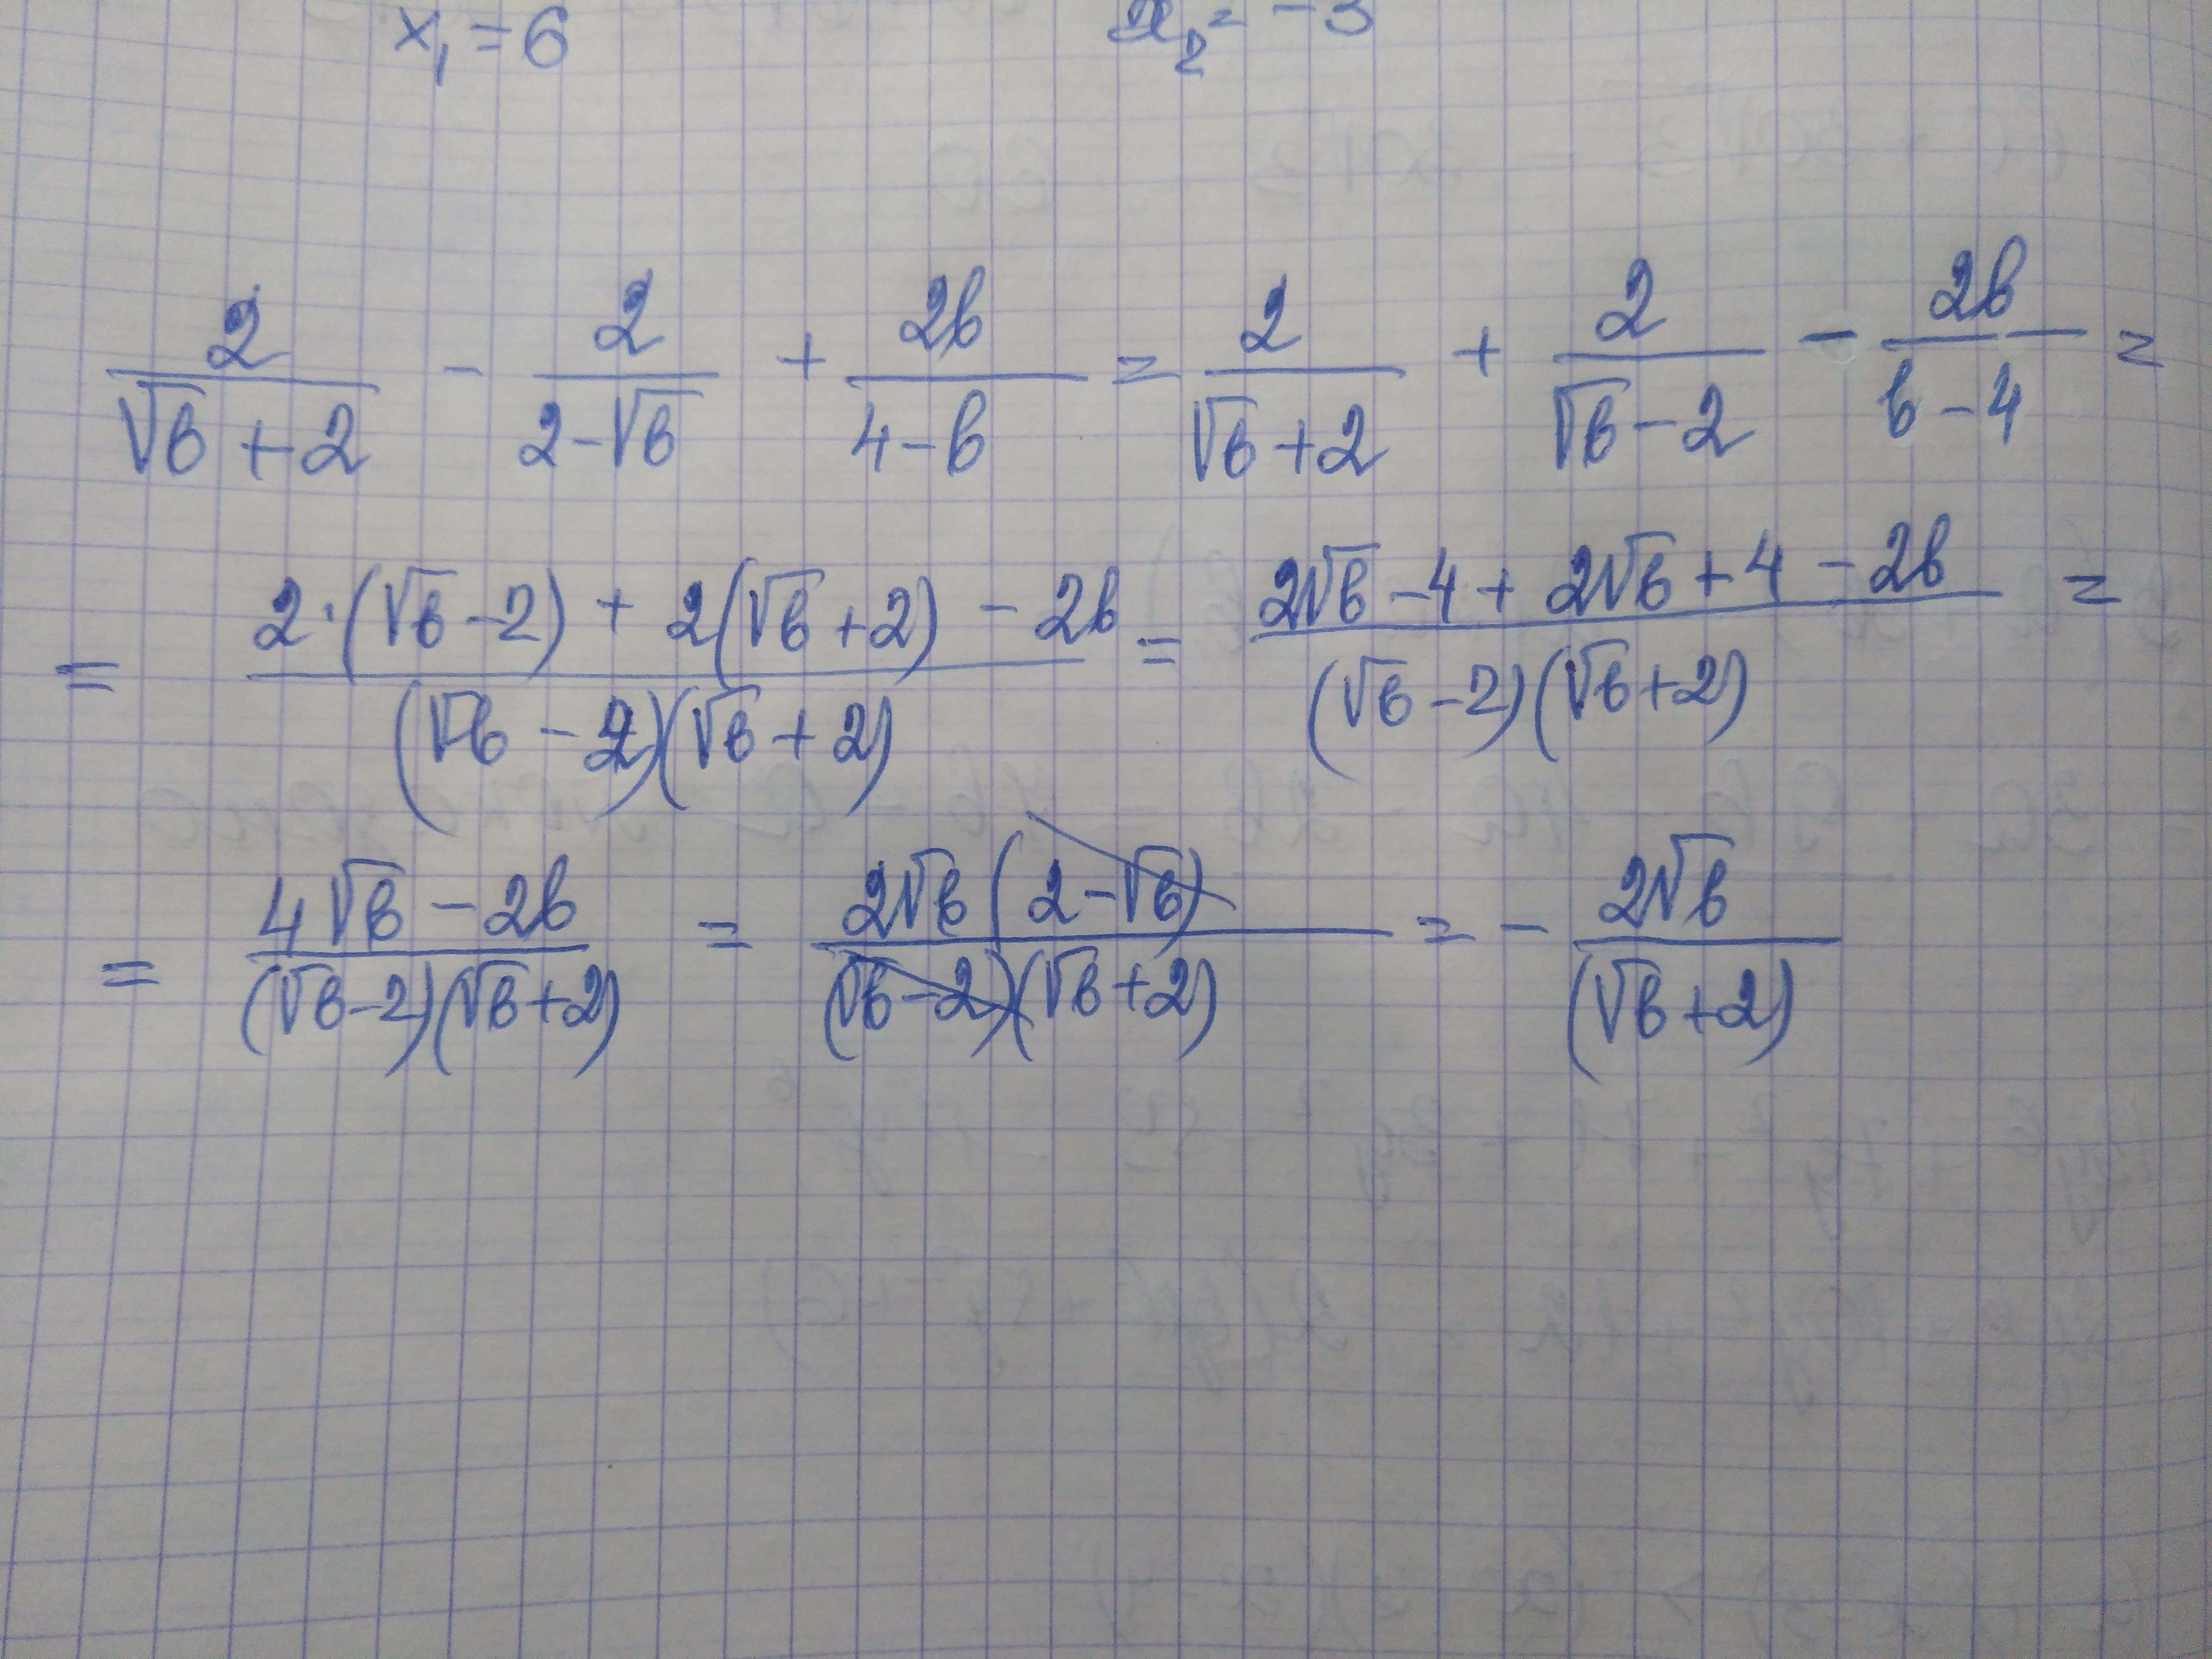 x₁ = 6 x₂ = -3
2/(√b + 2) - 2/(2 - √b) + 2b/(4 - b) = 2/(√b + 2) + 2/(√b - 2) - 2b/(b - 4) =
= (2·(√b - 2) + 2(√b + 2) - 2b)/((√b - 2)(√b + 2)) = (2√b - 4 + 2√b + 4 - 2b)/((√b - 2)(√b + 2)) =
= (4√b - 2b)/((√b - 2)(√b + 2)) = (2√b(2 - √b))/((√b - 2)(√b + 2)) = - 2√b/(√b + 2)